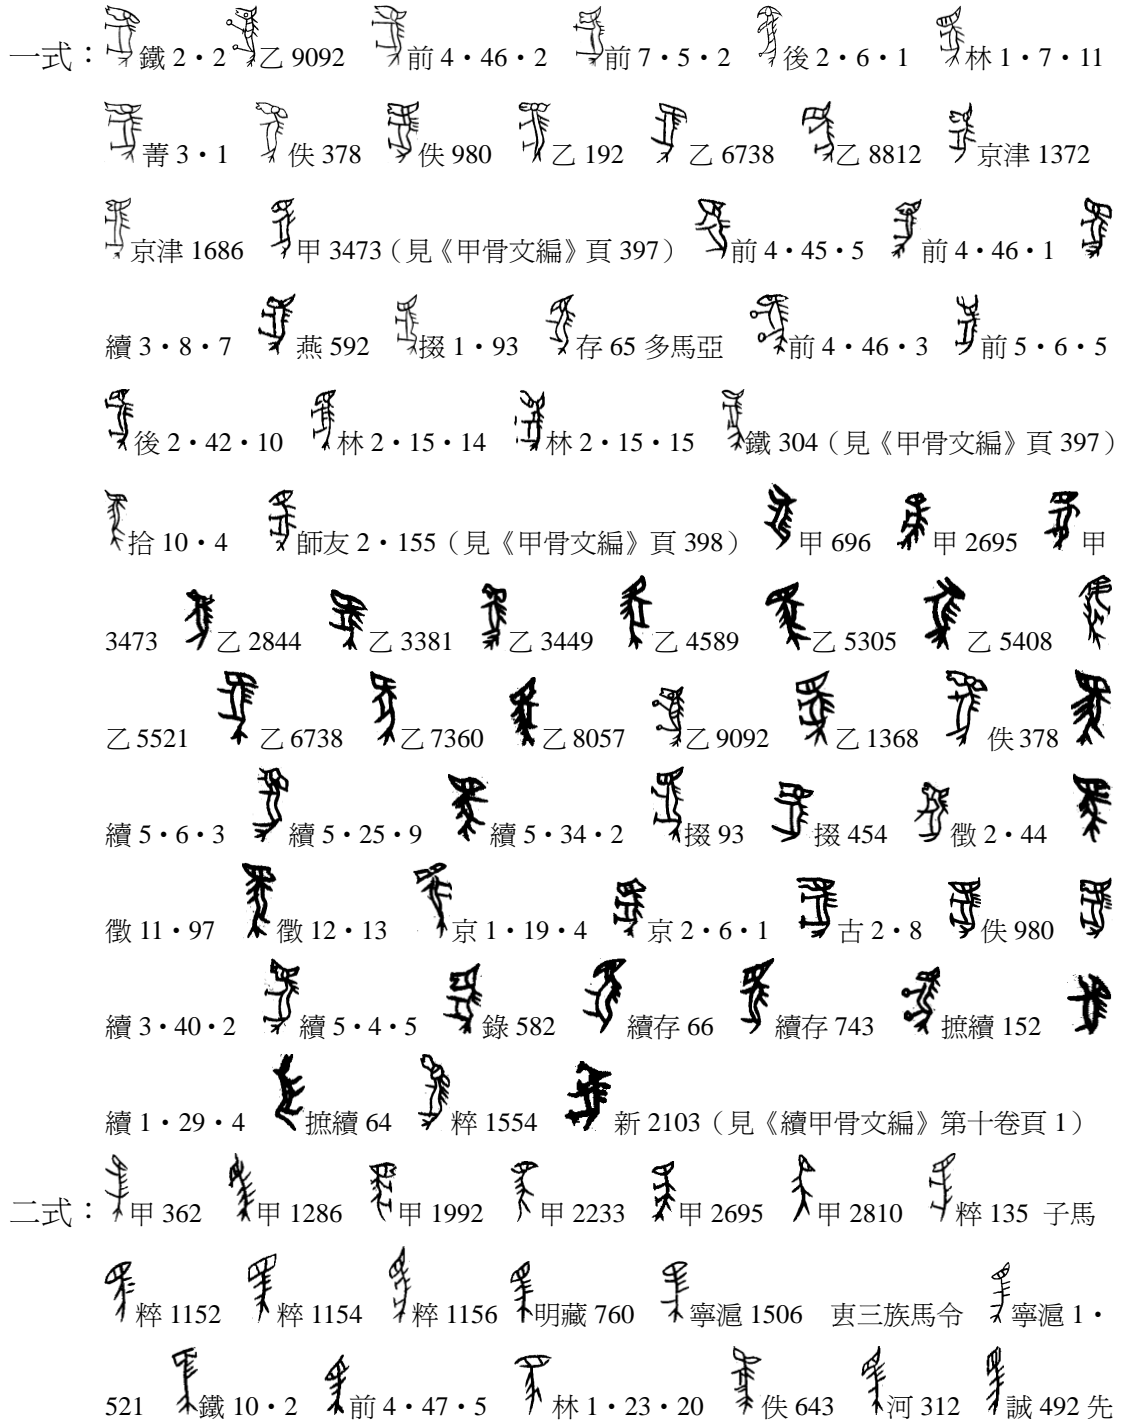 一式：鐵 2‧2 乙 9092 前 4‧46‧2 前 7‧5‧2 後 2‧6‧1 林 1‧7‧11
菁 3‧1 佚 378 佚 980 乙 192 乙 6738 乙 8812 京津 1372
京津 1686 甲 3473（見《甲骨文編》頁 397） 前 4‧45‧5 前 4‧46‧1
續 3‧8‧7 燕 592 掇 1‧93 存 65 多馬亞 前 4‧46‧3 前 5‧6‧5
後 2‧42‧10 林 2‧15‧14 林 2‧15‧15 鐵 304（見《甲骨文編》頁 397）
拾 10‧4 師友 2‧155（見《甲骨文編》頁 398） 甲 696 甲 2695 甲
3473 乙 2844 乙 3381 乙 3449 乙 4589 乙 5305 乙 5408
乙 5521 乙 6738 乙 7360 乙 8057 乙 9092 乙 1368 佚 378
續 5‧6‧3 續 5‧25‧9 續 5‧34‧2 掇 93 掇 454 徵 2‧44
徵 11‧97 徵 12‧13 京 1‧19‧4 京 2‧6‧1 古 2‧8 佚 980
續 3‧40‧2 續 5‧4‧5 錄 582 續存 66 續存 743 摭續 152
續 1‧29‧4 摭續 64 粹 1554 新 2103（見《續甲骨文編》第十卷頁 1）
二式：甲 362 甲 1286 甲 1992 甲 2233 甲 2695 甲 2810 粹 135 子馬
粹 1152 粹 1154 粹 1156 明藏 760 寧滬 1506 叀三族馬令 寧滬 1‧
521 鐵 10‧2 前 4‧47‧5 林 1‧23‧20 佚 643 河 312 誠 492 先